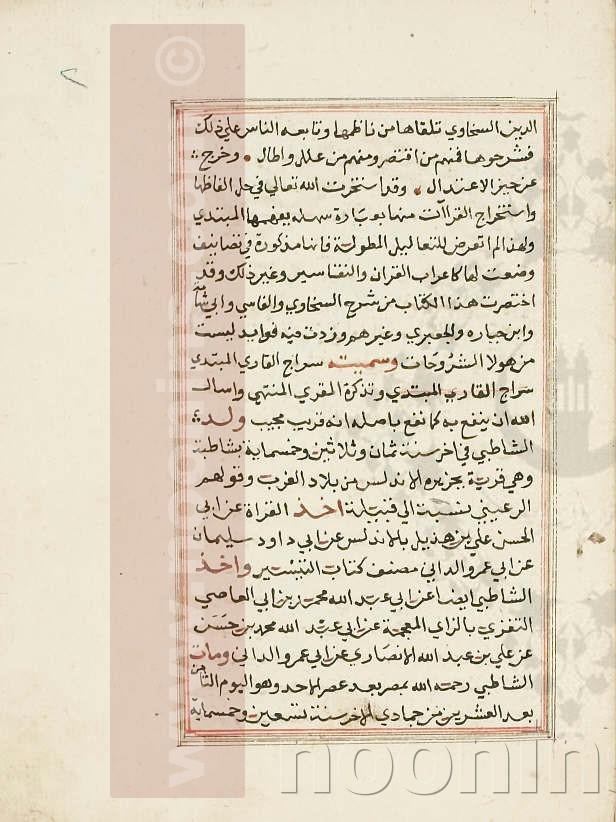 الدين السخاوي تلقاها من ناظمها وتابعه الناس علي ذلك
فشرحوها فمنهم من اقتصر ومنهم من علل واطال وخرج
عن حيز الاعتدال وقد استخرت الله تعالي في حل الفاظها
واستخراج القراآت منها بعبارة سهله يفهمها المبتدي
ولهذا لم اتعرض للتعاليل المطولة فانها مذكورة في تصانيف
وضعت لها كاعراب القران والتفاسير وغير ذلك وقد
اختصرت هذا الكتاب من شرح السخاوي والفاسي وابي شامة
وابن جباره والجعبري وغيرهم وزدت فيه فوايد ليست
من هولا الشروحات وسميته سراج القاري المبتدي
سراج القاري المبتدي وتذكرة المقري المنتهي واسال
الله ان ينفع به كما نفع باصله انه قريب مجيب ولد
الشاطبي في اخر سنة ثمان وثلاثين وخمسماية بشاطبة
وهي قرية بجزيره الاندلس من بلاد الغرب وقولهم
الرعيني نسبت الي قبيلة اخذ القراة عن ابي
الحسن علي بن هذيل بالاندلس عن ابي داود سليمان
عن ابي عمرو الداني مصنف كتاب التيسير واخذ
الشاطبي ايضا عن ابي عبد الله محمد بن ابي العاصي
النفزي بالزاي المعجمة عن ابي عبد الله محمد بن حسن
عن علي بن عبد الله الانصاري عن ابي عمرو الداني ومات
الشاطبي رحمته الله بمصر بعد عصر الاحد وهو اليوم الثامن
بعد العشرين من جمادي الاخر سنة تسعين وخمسماية
noonin